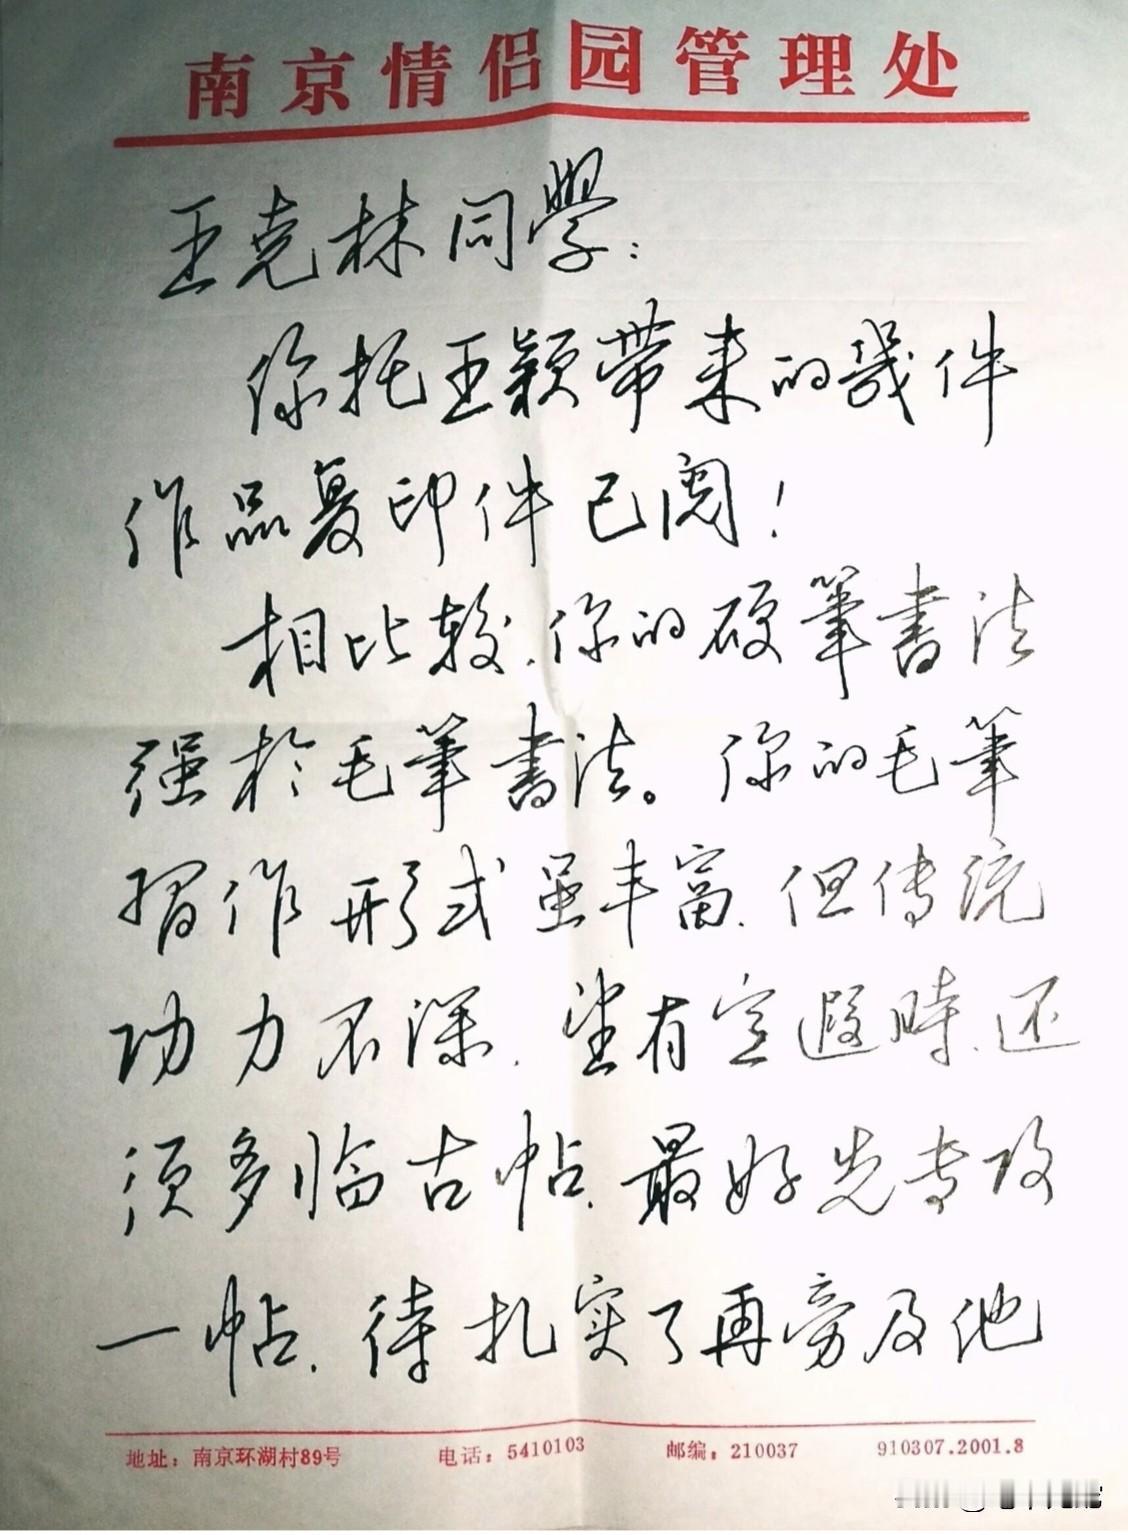 南京情侣园管理处
王克林同學：
你托王颖带来的幾件
作品复印件已阅！
相比较，你的硬筆書法
强於毛筆書法。你的毛筆
習作形式虽丰富，但传统
功力不深，望有空遐時，还
须多临古帖，最好先专攻
一帖，待扎实了再旁及他
地址：南京环湖村89号 电话：5410103 邮编：210037 910307.2001.8